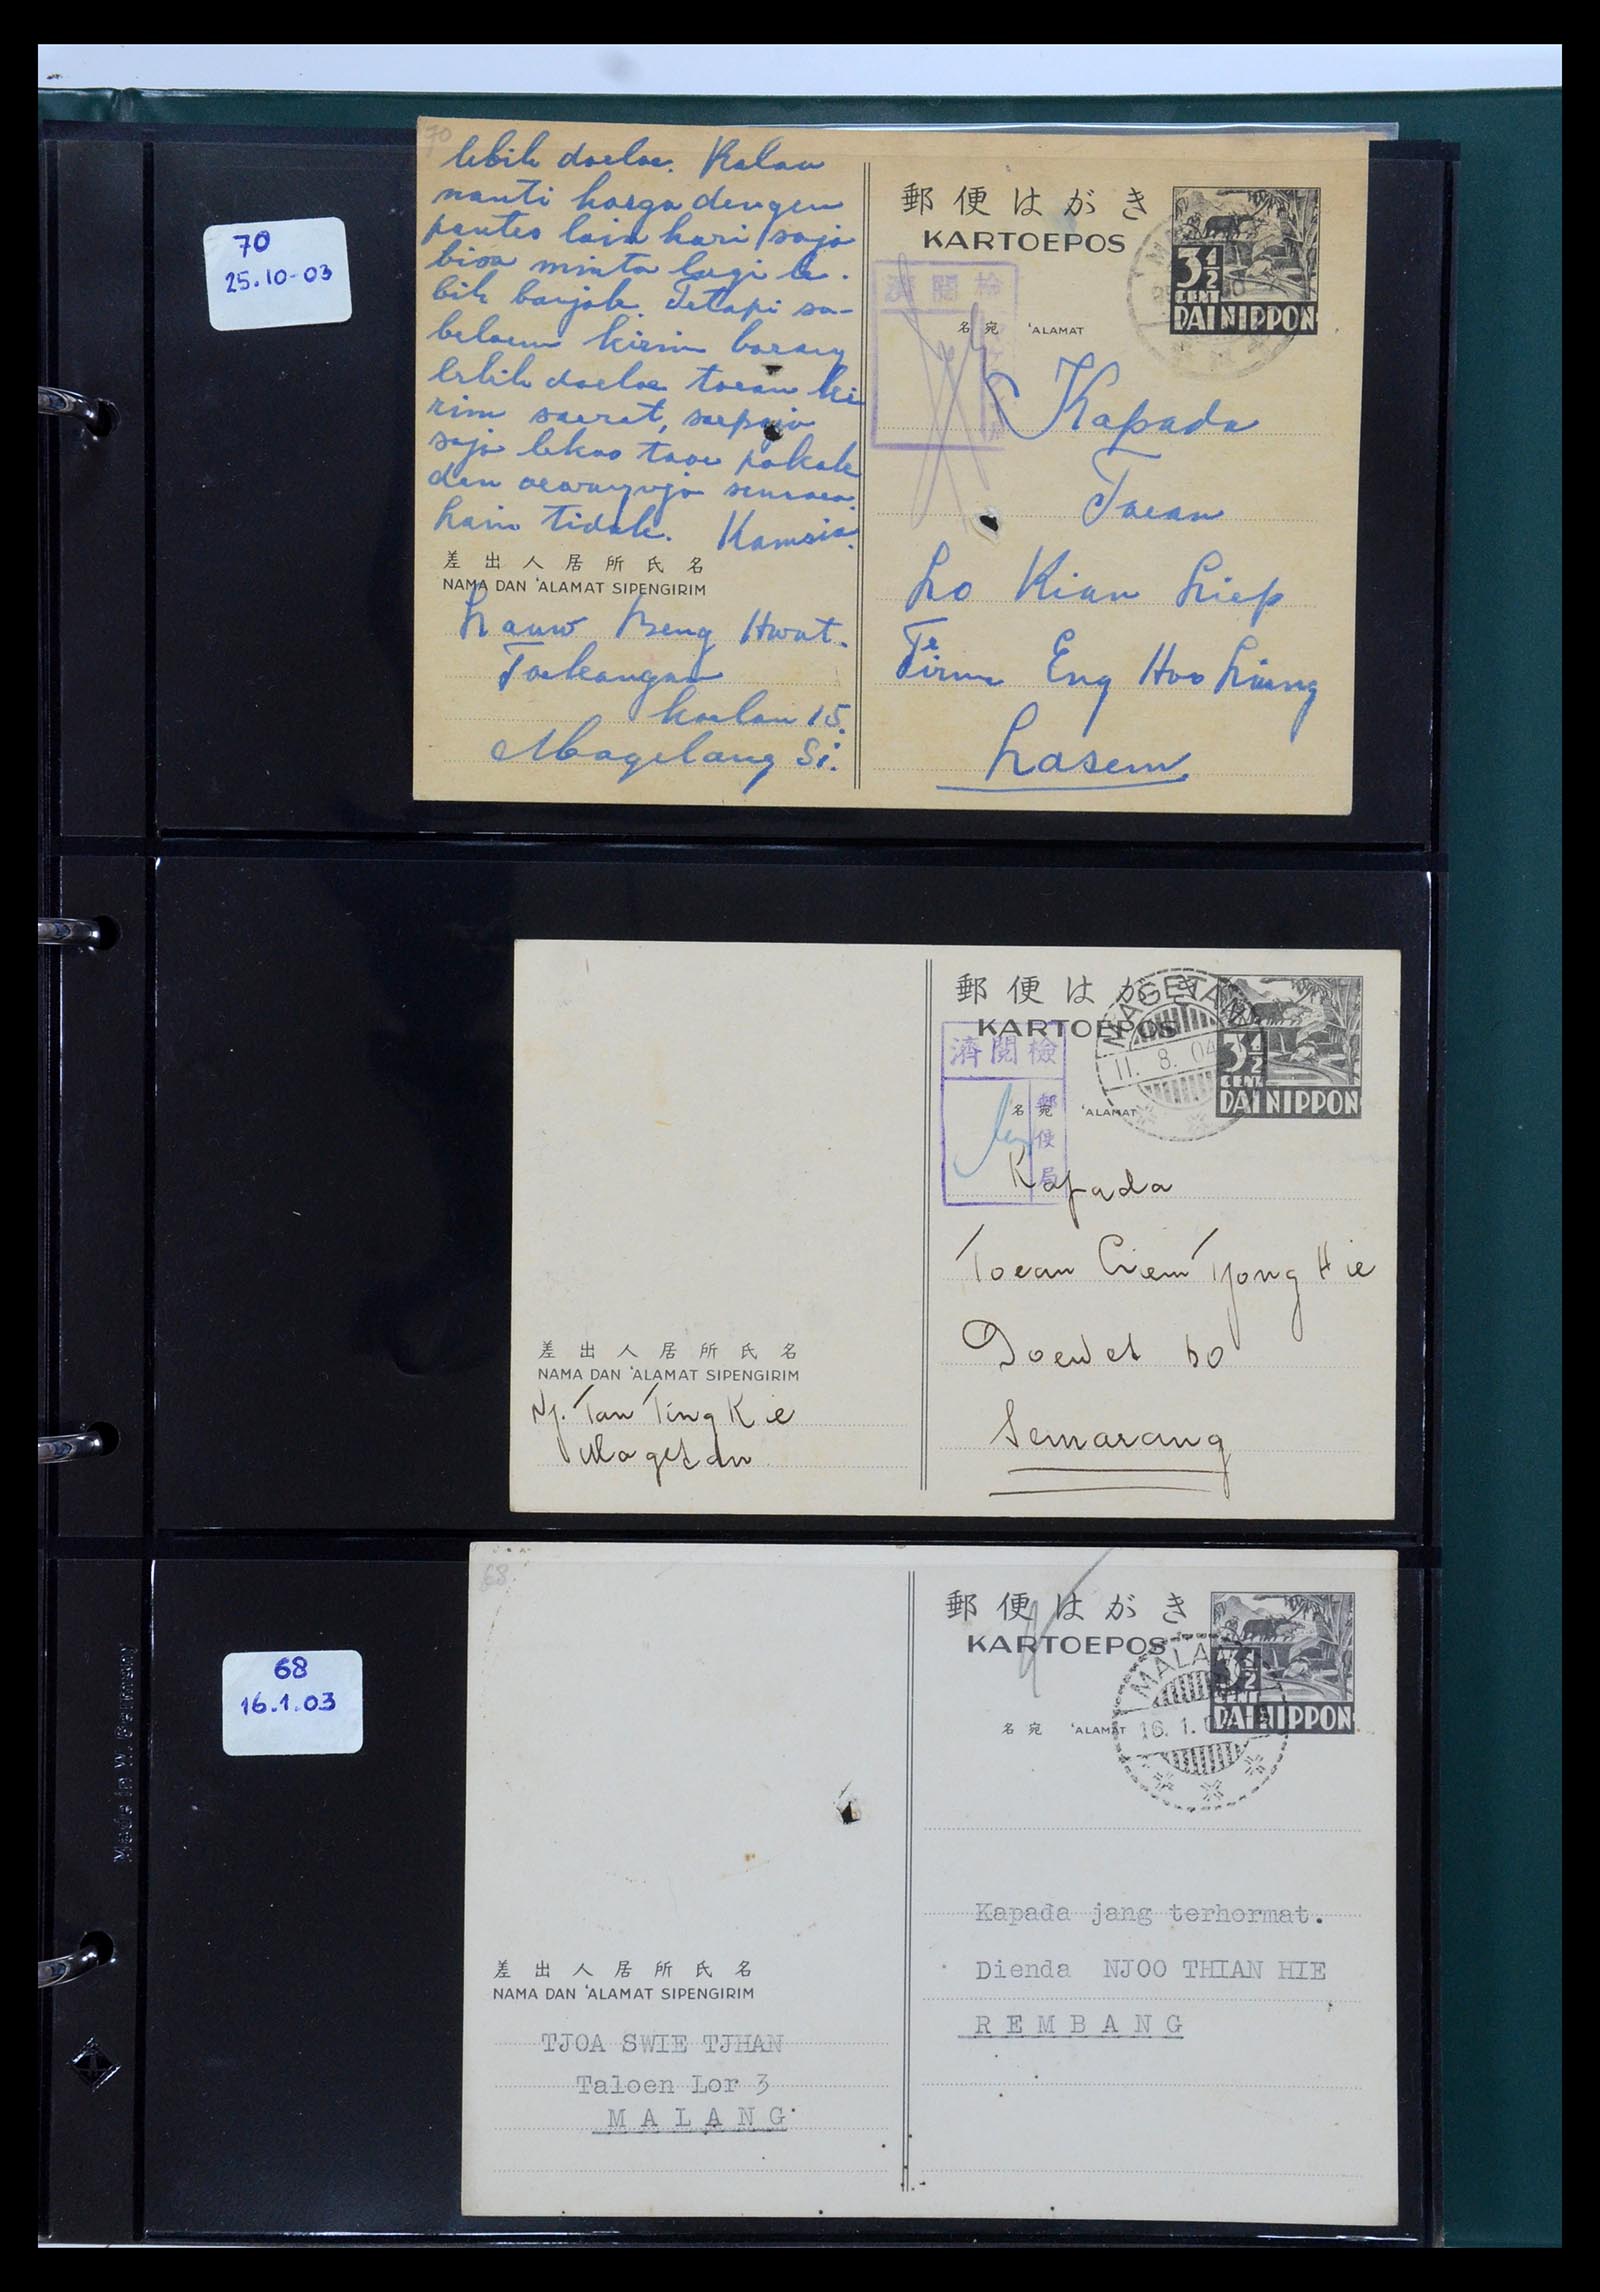 70
25.10-03
70
lebih doeloe. Kalau
nanti harga dengen
pantes lain hari saja
bisa minta lagi le-
bih banjak. Tetapi sa-
beloem kirim barang
lebih doeloe toean ki
rim soerat, soepaja
saja lekas taoe pakah
den oewangnja
tidak. Kamsia.
差出人居所氏名
NAMA DAN 'ALAMAT SIPENGIRIM
Lauw Beng Hwat.
Toekangan
Koelon 15.
Magelang Si.
郵便はがき
KARTOEPOS
3½
CENT
DAI NIPPON
濟閱檢
名宛 'ALAMAT
Kapada
Toean
Lo Kian Liep
Firma Eng Hoo Liong
Lasem
郵便はがき
KARTOEPOS
MAGETAN
11. 8. 04
3½
CENT
DAI NIPPON
濟閱檢
郵便局
名宛 'ALAMAT
Kapada
Toean Tjong Hie
Doewet 60
Semarang
差出人居所氏名
NAMA DAN 'ALAMAT SIPENGIRIM
Nj. Tan Ting Kie
Magetan
68
16.1.03
68
郵便はがき
KARTOEPOS
MALANG
16. 1.
3½
CENT
DAI NIPPON
名宛 'ALAMAT
Kapada jang terhormat.
Dienda NJOO THIAN HIE
REMBANG
差出人居所氏名
NAMA DAN 'ALAMAT SIPENGIRIM
TJOA SWIE TJHAN
Taloen Lor 3
MALANG
Made in W. Germany